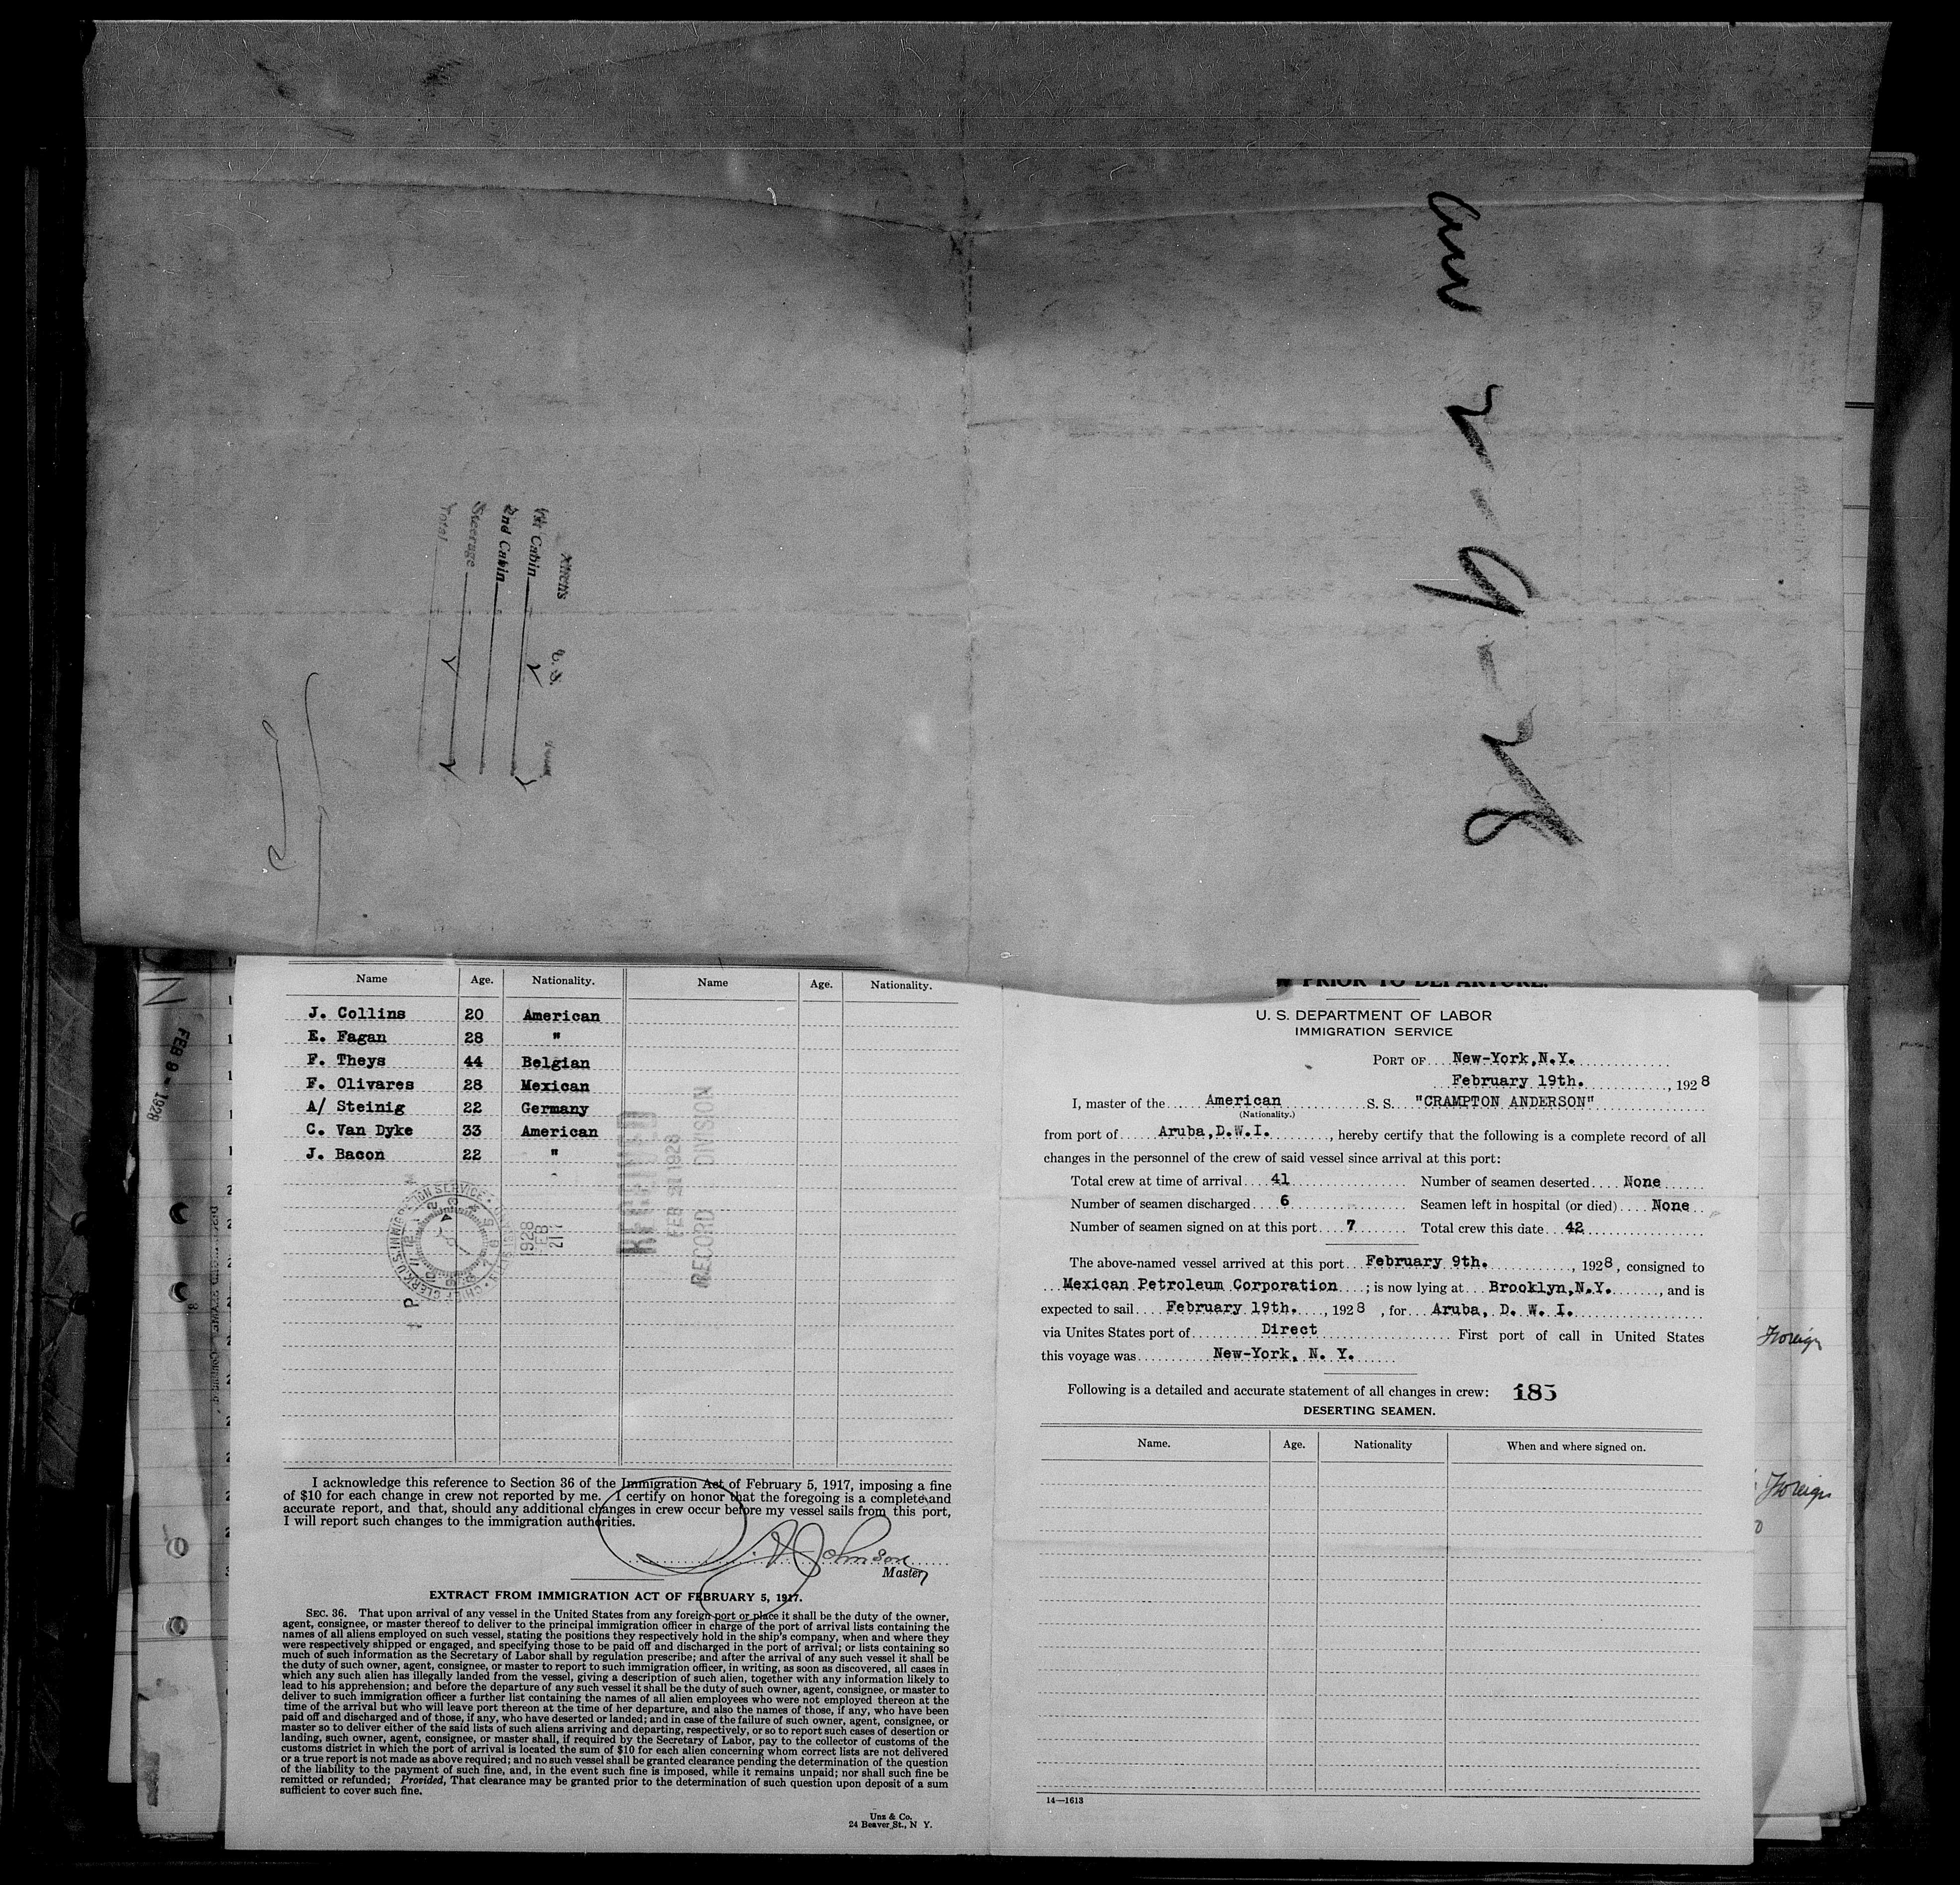 arr 2-9-28
Aliens U. S.
1st Cabin
2nd Cabin
Steerage
Total
FEB 9 - 1928
Name Age. Nationality. Name Age. Nationality.
J. Collins 20 American
E. Fagan 28 "
F. Theys 44 Belgian
F. Olivares 28 Mexican
A/ Steinig 22 Germany
C. Van Dyke 33 American
J. Bacon 22 "
1928 FEB 21
RECEIVED
FEB 21 1928
RECORD DIVISION
I acknowledge this reference to Section 36 of the Immigration Act of February 5, 1917, imposing a fine
of $10 for each change in crew not reported by me. I certify on honor that the foregoing is a complete and
accurate report, and that, should any additional changes in crew occur before my vessel sails from this port,
I will report such changes to the immigration authorities.
Johnson
Master
EXTRACT FROM IMMIGRATION ACT OF FEBRUARY 5, 1917.
SEC. 36. That upon arrival of any vessel in the United States from any foreign port or place it shall be the duty of the owner,
agent, consignee, or master thereof to deliver to the principal immigration officer in charge of the port of arrival lists containing the
names of all aliens employed on such vessel, stating the positions they respectively hold in the ship's company, when and where they
were respectively shipped or engaged, and specifying those to be paid off and discharged in the port of arrival; or lists containing so
much of such information as the Secretary of Labor shall by regulation prescribe; and after the arrival of any such vessel it shall be
the duty of such owner, agent, consignee, or master to report to such immigration officer, in writing, as soon as discovered, all cases in
which any such alien has illegally landed from the vessel, giving a description of such alien, together with any information likely to
lead to his apprehension; and before the departure of any such vessel it shall be the duty of such owner, agent, consignee, or master to
deliver to such immigration officer a further list containing the names of all alien employees who were not employed thereon at the
time of the arrival but who will leave port thereon at the time of her departure, and also the names of those, if any, who have been
paid off and discharged and of those, if any, who have deserted or landed; and in case of the failure of such owner, agent, consignee, or
master so to deliver either of the said lists of such aliens arriving and departing, respectively, or so to report such cases of desertion or
landing, such owner, agent, consignee, or master shall, if required by the Secretary of Labor, pay to the collector of customs of the
customs district in which the port of arrival is located the sum of $10 for each alien concerning whom correct lists are not delivered
or a true report is not made as above required; and no such vessel shall be granted clearance pending the determination of the question
of the liability to the payment of such fine, and, in the event such fine is imposed, while it remains unpaid; nor shall such fine be
remitted or refunded; Provided, That clearance may be granted prior to the determination of such question upon deposit of a sum
sufficient to cover such fine.
Unz & Co.
24 Beaver St., N Y.
PRIOR TO DEPARTURE.
U. S. DEPARTMENT OF LABOR
IMMIGRATION SERVICE
PORT OF New-York,N.Y.
February 19th. , 1928
I, master of the American S. S. "CRAMPTON ANDERSON"
(Nationality.)
from port of Aruba,D.W.I. , hereby certify that the following is a complete record of all
changes in the personnel of the crew of said vessel since arrival at this port:
Total crew at time of arrival 41 Number of seamen deserted None
Number of seamen discharged 6 Seamen left in hospital (or died) None
Number of seamen signed on at this port 7 Total crew this date 42
The above-named vessel arrived at this port February 9th. , 1928, consigned to
Mexican Petroleum Corporation ; is now lying at Brooklyn,N.Y. , and is
expected to sail February 19th. , 1928 , for Aruba, D. W. I.
via Unites States port of Direct First port of call in United States
this voyage was New-York, N. Y.
Following is a detailed and accurate statement of all changes in crew: 185
DESERTING SEAMEN.
Name. Age. Nationality When and where signed on.
14—1613
Foreign
Foreign